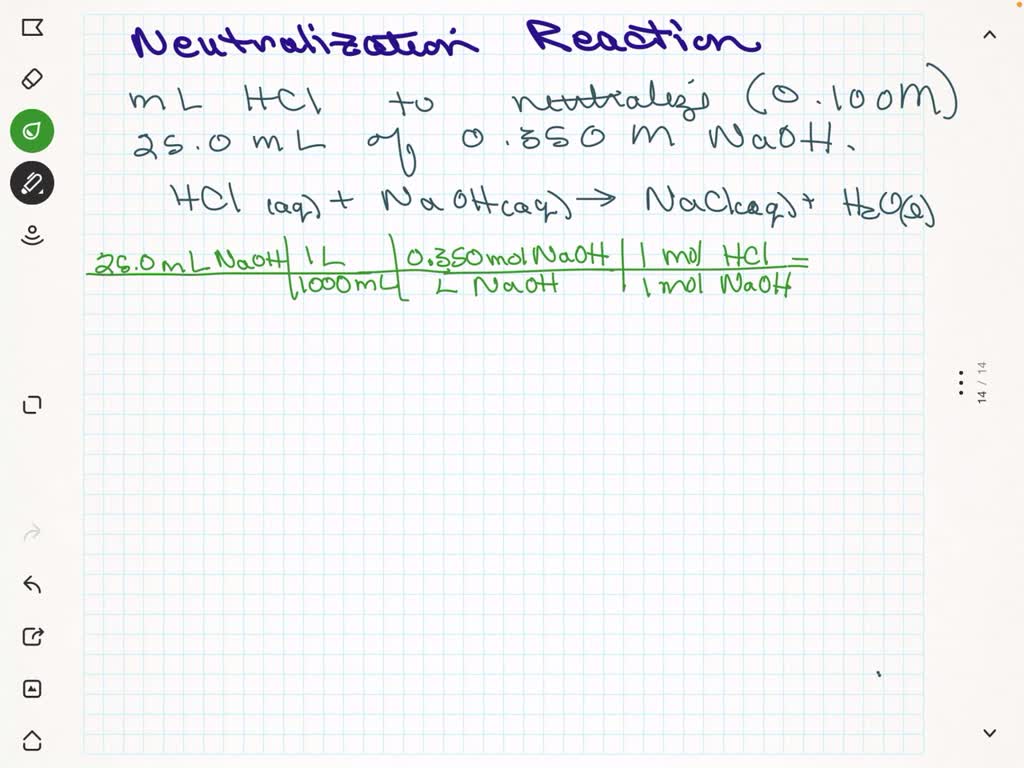 Neutralization Reaction
mL HCl to neutralize (0.100M)
25.0 mL of 0.350 M NaOH.
HCl (aq) + NaOH(aq) → NaCl(aq) + H2O(l)
25.0 mL NaOH | 1L | 0.350 mol NaOH | 1 mol HCl =
1000mL | L NaOH | 1 mol NaOH
14 / 14